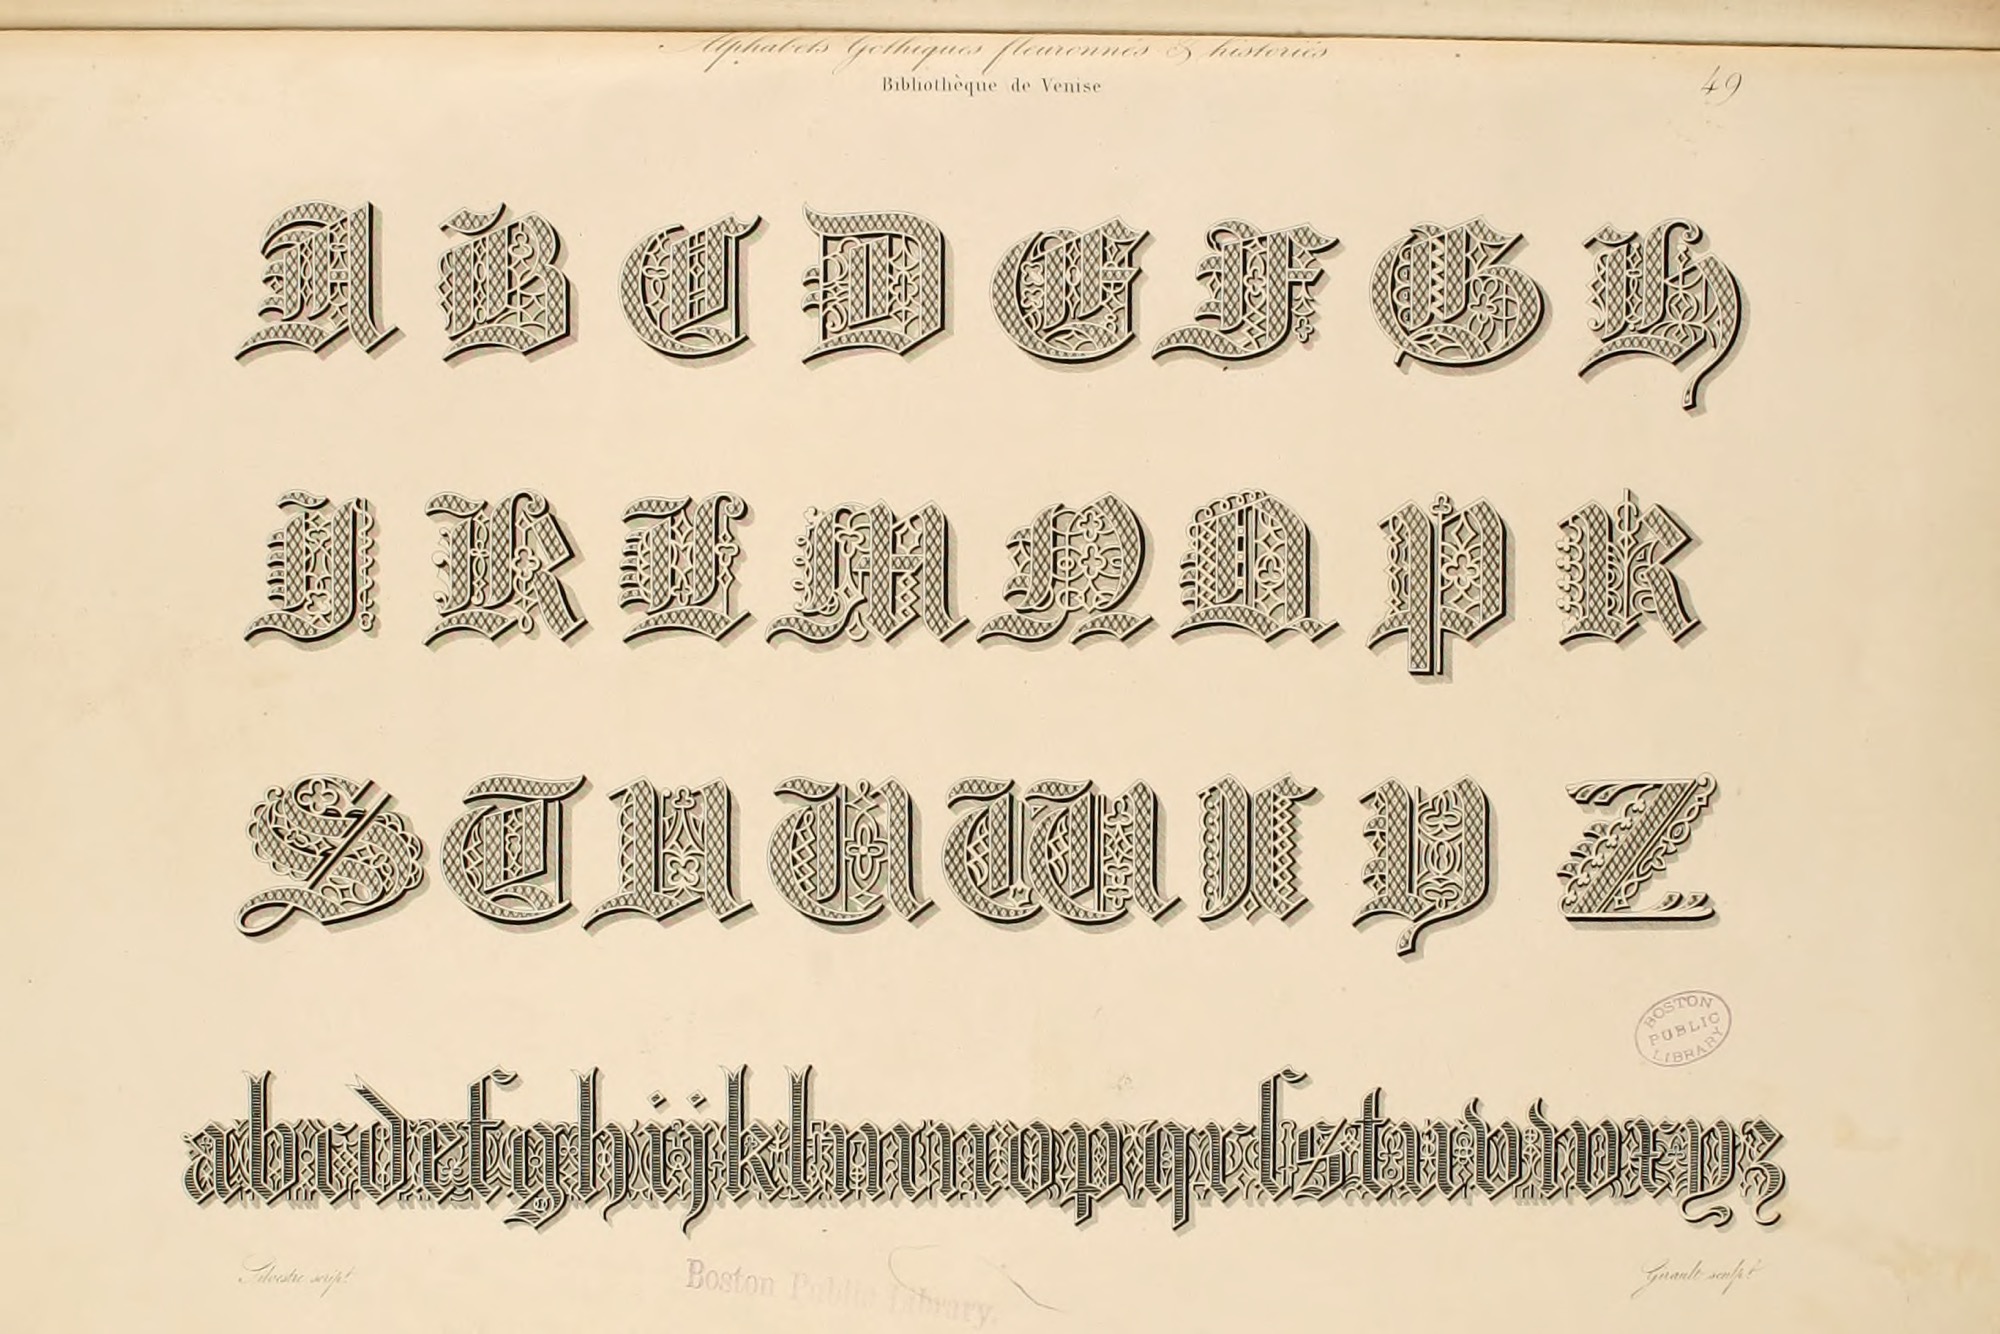 Alphabets Gothiques fleuronnés & historiés
Bibliothèque de Venise
49
A B C D E F G H
J K L M N Q P R
S T U V W X Y Z
BOSTON
PUBLIC
LIBRARY
abcdefghijklmnopqrſstuvwxyz
Silvestre scripᵗ
Girault sculpᵗ
Boston Public Library.